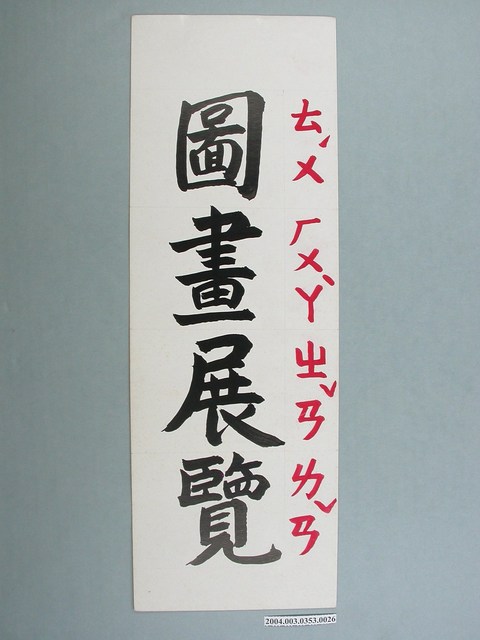 圖畫展覽
ㄊㄨˊ ㄏㄨㄚˋ ㄓㄢˇ ㄌㄢˇ
2004.003.0353.0026